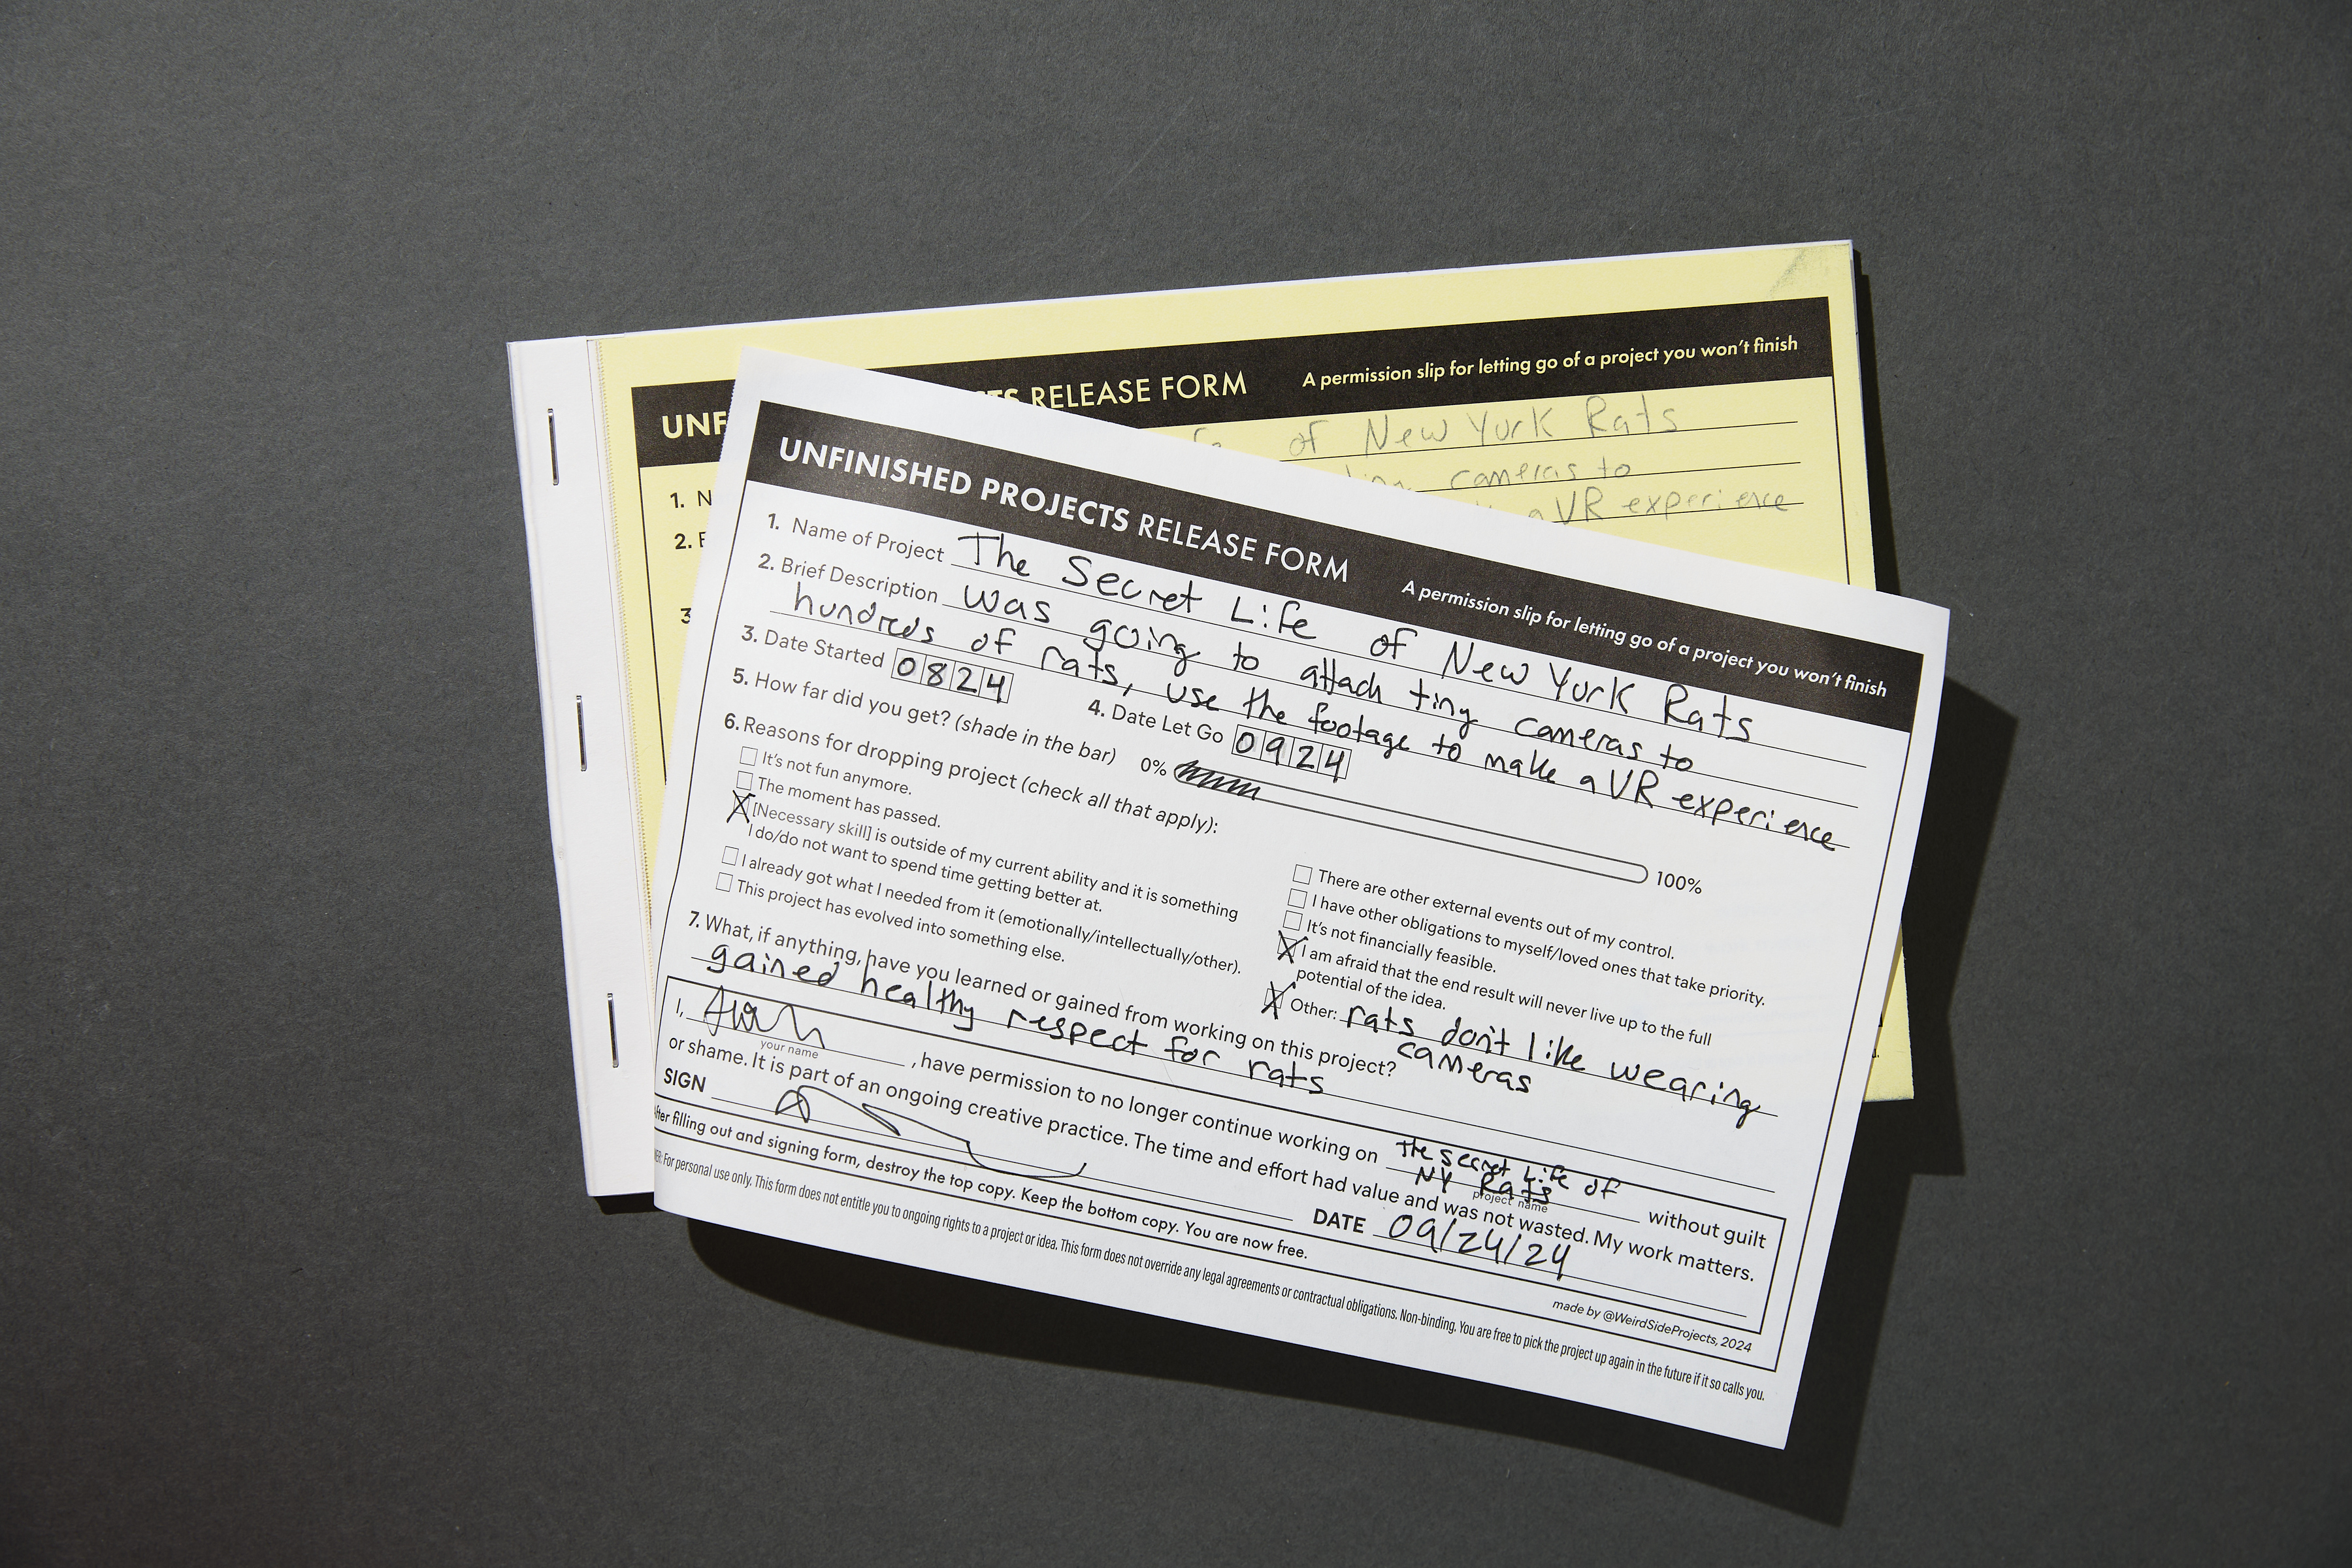 UNF
TS RELEASE FORM
A permission slip for letting go of a project you won't finish
of New York Rats
cameras to
a VR experience
1. N
2.
3
UNFINISHED PROJECTS RELEASE FORM
A permission slip for letting go of a project you won't finish
1. Name of Project The Secret Life of New York Rats
2. Brief Description was going to attach tiny cameras to
hundreds of rats, use the footage to make a VR experience
3. Date Started 0824
4. Date Let Go 0924
5. How far did you get? (shade in the bar) 0% 100%
6. Reasons for dropping project (check all that apply):
It's not fun anymore.
The moment has passed.
X [Necessary skill] is outside of my current ability and it is something
I do/do not want to spend time getting better at.
I already got what I needed from it (emotionally/intellectually/other).
This project has evolved into something else.
There are other external events out of my control.
I have other obligations to myself/loved ones that take priority.
It's not financially feasible.
X I am afraid that the end result will never live up to the full
potential of the idea.
X Other: rats don't like wearing
cameras
7. What, if anything, have you learned or gained from working on this project?
gained healthy respect for rats
I, , have permission to no longer continue working on The Secret Life of
NY Rats
without guilt
your name
project name
or shame. It is part of an ongoing creative practice. The time and effort had value and was not wasted. My work matters.
SIGN
DATE 09/24/24
After filling out and signing form, destroy the top copy. Keep the bottom copy. You are now free.
made by @WeirdSideProjects, 2024
For personal use only. This form does not entitle you to ongoing rights to a project or idea. This form does not override any legal agreements or contractual obligations. Non-binding. You are free to pick the project up again in the future if it so calls you.